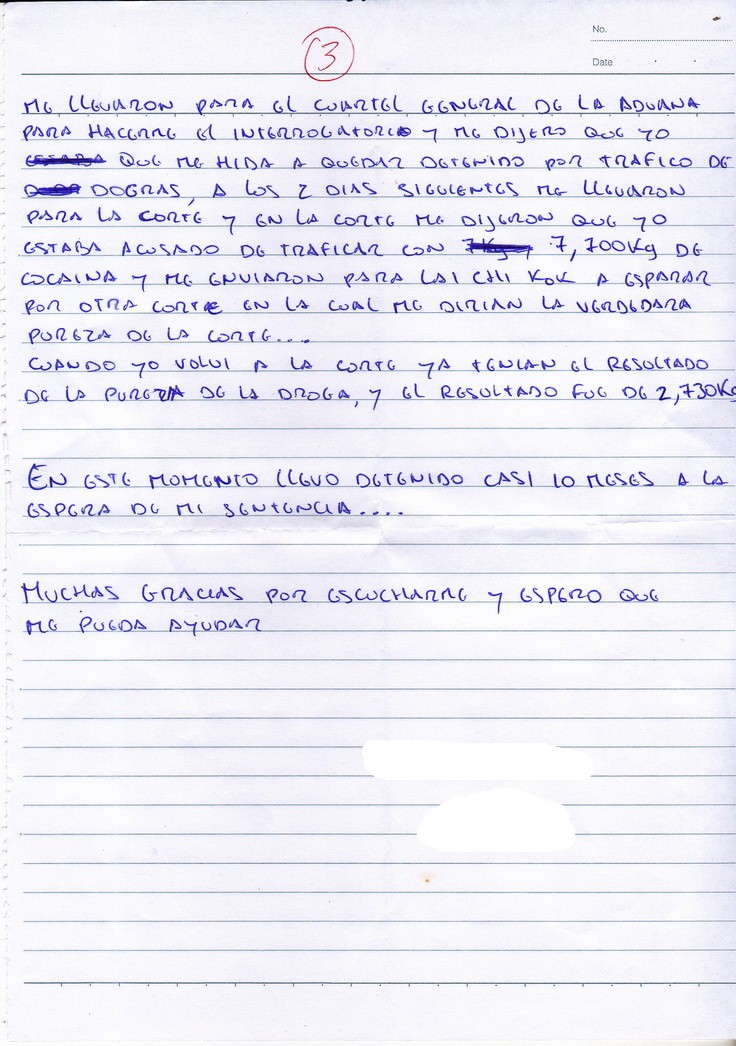 3
No.
Date
ME LLEVARON PARA EL CUARTEL GENERAL DE LA ADUANA
PARA HACERME EL INTERROGATORIO Y ME DIJERO QUE YO
QUE ME HIDA A QUEDAR DETENIDO POR TRAFICO DE
DOGRAS, A LOS 2 DIAS SIGUIENTES ME LLEVARON
PARA LA CORTE Y EN LA CORTE ME DIJERON QUE YO
ESTABA ACUSADO DE TRAFICAR CON 7,700Kg DE
COCAINA Y ME ENVIARON PARA LAI CHI KOK A ESPARAR
POR OTRA CORTE EN LA CUAL ME DIRIAN LA VERDEDARA
PUREZA DE LA CORTE...
CUANDO YO VOLVI A LA CORTE YA TENIAN EL RESULTADO
DE LA PUREZA DE LA DROGA, Y EL RESULTADO FUE DE 2,730Kg
EN ESTE MOMENTO LLEVO DETENIDO CASI 10 MESES A LA
ESPERA DE MI SENTENCIA....
MUCHAS GRACIAS POR ESCUCHARME Y ESPERO QUE
ME PUEDA AYUDAR